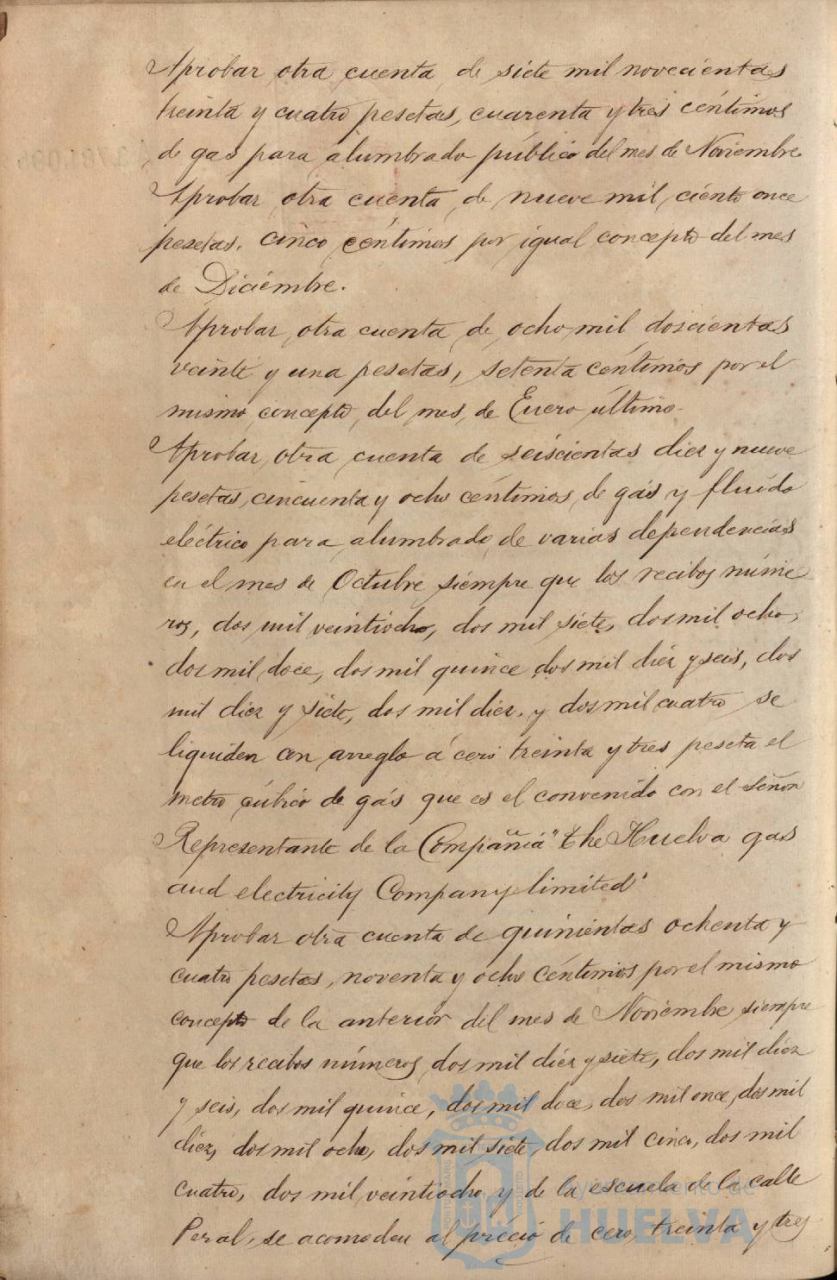 Aprobar otra cuenta de siete mil novecientas
treinta y cuatro pesetas, cuarenta y tres céntimos
de gas para alumbrado público del mes de Noviembre
Aprobar otra cuenta de nueve mil ciento once
pesetas, cinco céntimos por igual concepto del mes
de Diciembre.
Aprobar otra cuenta de ocho mil doscientas
veinte y una pesetas, setenta céntimos por el
mismo concepto del mes de Enero último.
Aprobar otra cuenta de seiscientas diez y nueve
pesetas, cincuenta y ocho céntimos de gás y fluído
eléctrico para alumbrado de varias dependencias
en el mes de Octubre siempre que los recibos núme
ros, dos mil veintiocho, dos mil siete, dos mil ocho,
dos mil doce, dos mil quince dos mil diez y seis, dos
mil diez y siete, dos mil diez, y dos mil cuatro se
liquiden con arreglo á cero treinta y tres peseta el
metro cúbico de gás que es el convenido con el Señor
Representante de la Compañia "the Huelva gas
and electricity Company limited"
Aprobar otra cuenta de quinientas ochenta y
cuatro pesetas, noventa y ocho céntimos por el mismo
concepto de la anterior del mes de Noviembre siempre
que los recibos números dos mil diez y siete, dos mil diez
y seis, dos mil quince, dos mil doce, dos mil once, dos mil
diez, dos mil ocho, dos mil siete, dos mil cinco, dos mil
cuatro, dos mil veintiocho y de la escuela de la calle
Peral, se acomoden al précio de cero, treinta y tres
Ayuntamiento de
HUELVA